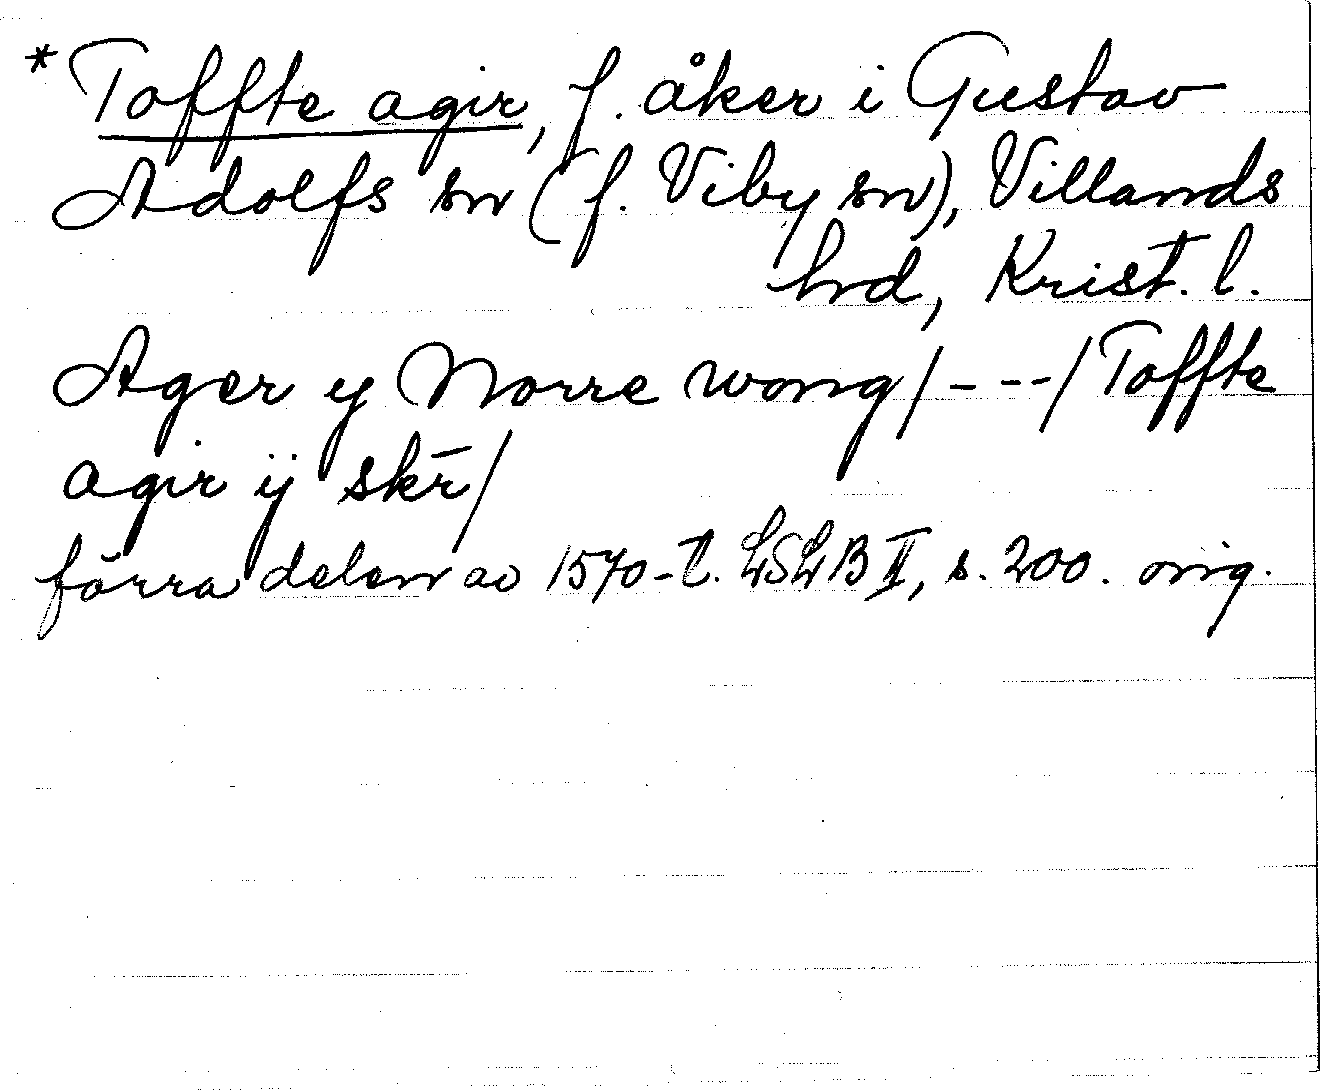 * Toffte agir, f. åker i Gustav
Adolfs sn (f. Viby sn), Villands
hrd, Krist. l.
Ager y Norre wong/---/Toffte
agir ij skr̄/
förra delen av 1570-t. LSLB II, s. 200. orig.